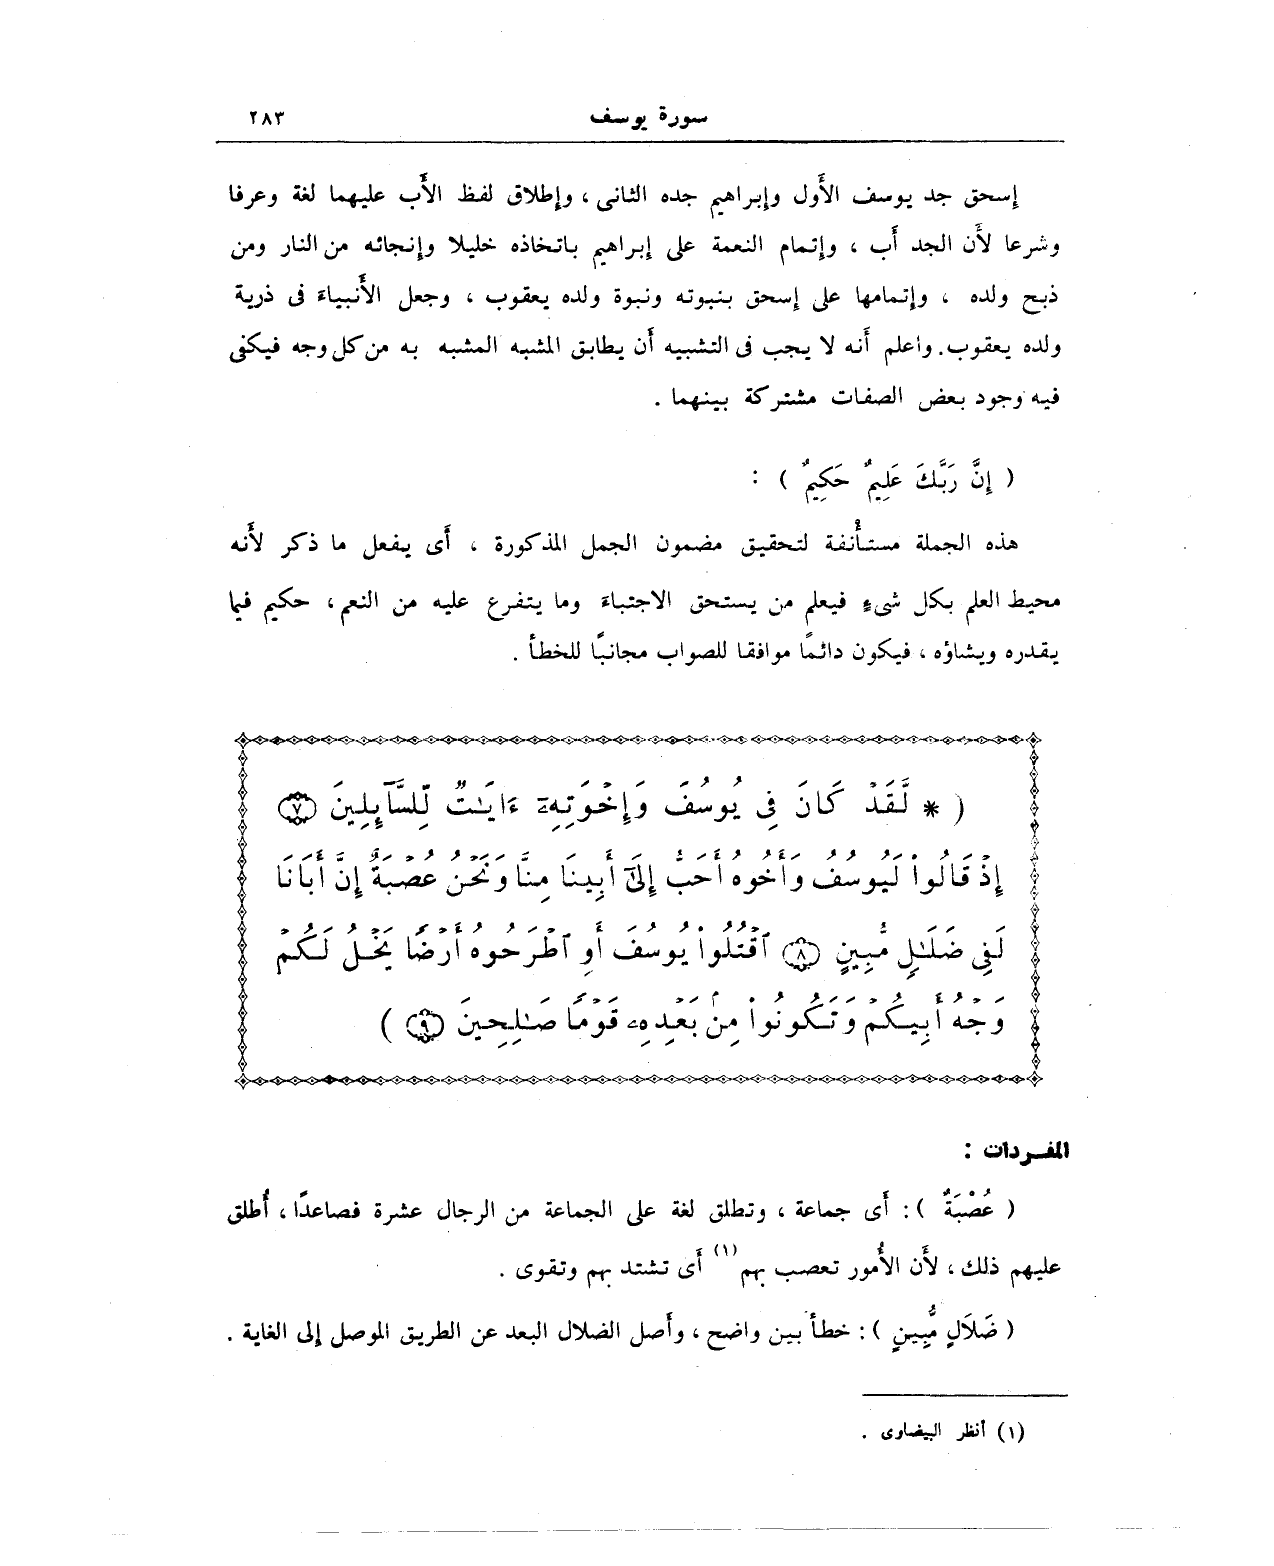 سورة يوسف ٢٨٣
إسحق جد يوسف الأَول وإبراهيم جده الثانى ، وإطلاق لفظ الأَب عليهما لغة وعرفا
وشرعا لأَن الجد أَب ، وإتمام النعمة على إبراهيم باتخاذه خليلا وإنجائه من النار ومن
ذبح ولده ، وإتمامها على إسحق بنبوته ونبوة ولده يعقوب ، وجعل الأَنبياءَ فى ذرية
ولده يعقوب . واعلم أَنه لا يجب فى التشبيه أَن يطابق المشبه المشبه به من كل وجه فيكفى
فيه وجود بعض الصفات مشتركة بينهما .
( إِنَّ رَبَّكَ عَلِيمٌ حَكِيمٌ ) :
هذه الجملة مستأْنفة لتحقيق مضمون الجمل المذكورة ، أَى يفعل ما ذكر لأَنه
محيط العلم بكل شىءٍ فيعلم من يستحق الاجتباءَ وما يتفرع عليه من النعم ، حكيم فيما
يقدره ويشاؤه ، فيكون دائمًا موافقا للصواب مجانبًا للخطأ .
( * لَّقَدْ كَانَ فِى يُوسُفَ وَإِخْوَتِهِۦٓ ءَايَـٰتٌ لِّلسَّآئِلِينَ ٧
إِذْ قَالُوا۟ لَيُوسُفُ وَأَخُوهُ أَحَبُّ إِلَىٰٓ أَبِينَا مِنَّا وَنَحْنُ عُصْبَةٌ إِنَّ أَبَانَا
لَفِى ضَلَـٰلٍ مُّبِينٍ ٨ ٱقْتُلُوا۟ يُوسُفَ أَوِ ٱطْرَحُوهُ أَرْضًا يَخْلُ لَكُمْ
وَجْهُ أَبِيكُمْ وَتَكُونُوا۟ مِنۢ بَعْدِهِۦ قَوْمًا صَـٰلِحِينَ ٩ )
المفـردات :
( عُصْبَةٌ ) : أَى جماعة ، وتطلق لغة على الجماعة من الرجال عشرة فصاعدًا ، أُطلق
عليهم ذلك ، لأَن الأُمور تعصب بهم (١) أَى تشتد بهم وتقوى .
( ضَلَالٍ مُّبِينٍ ) : خطأ بين واضح ، وأَصل الضلال البعد عن الطريق الموصل إلى الغاية .
(١) أنظر البيضاوى .